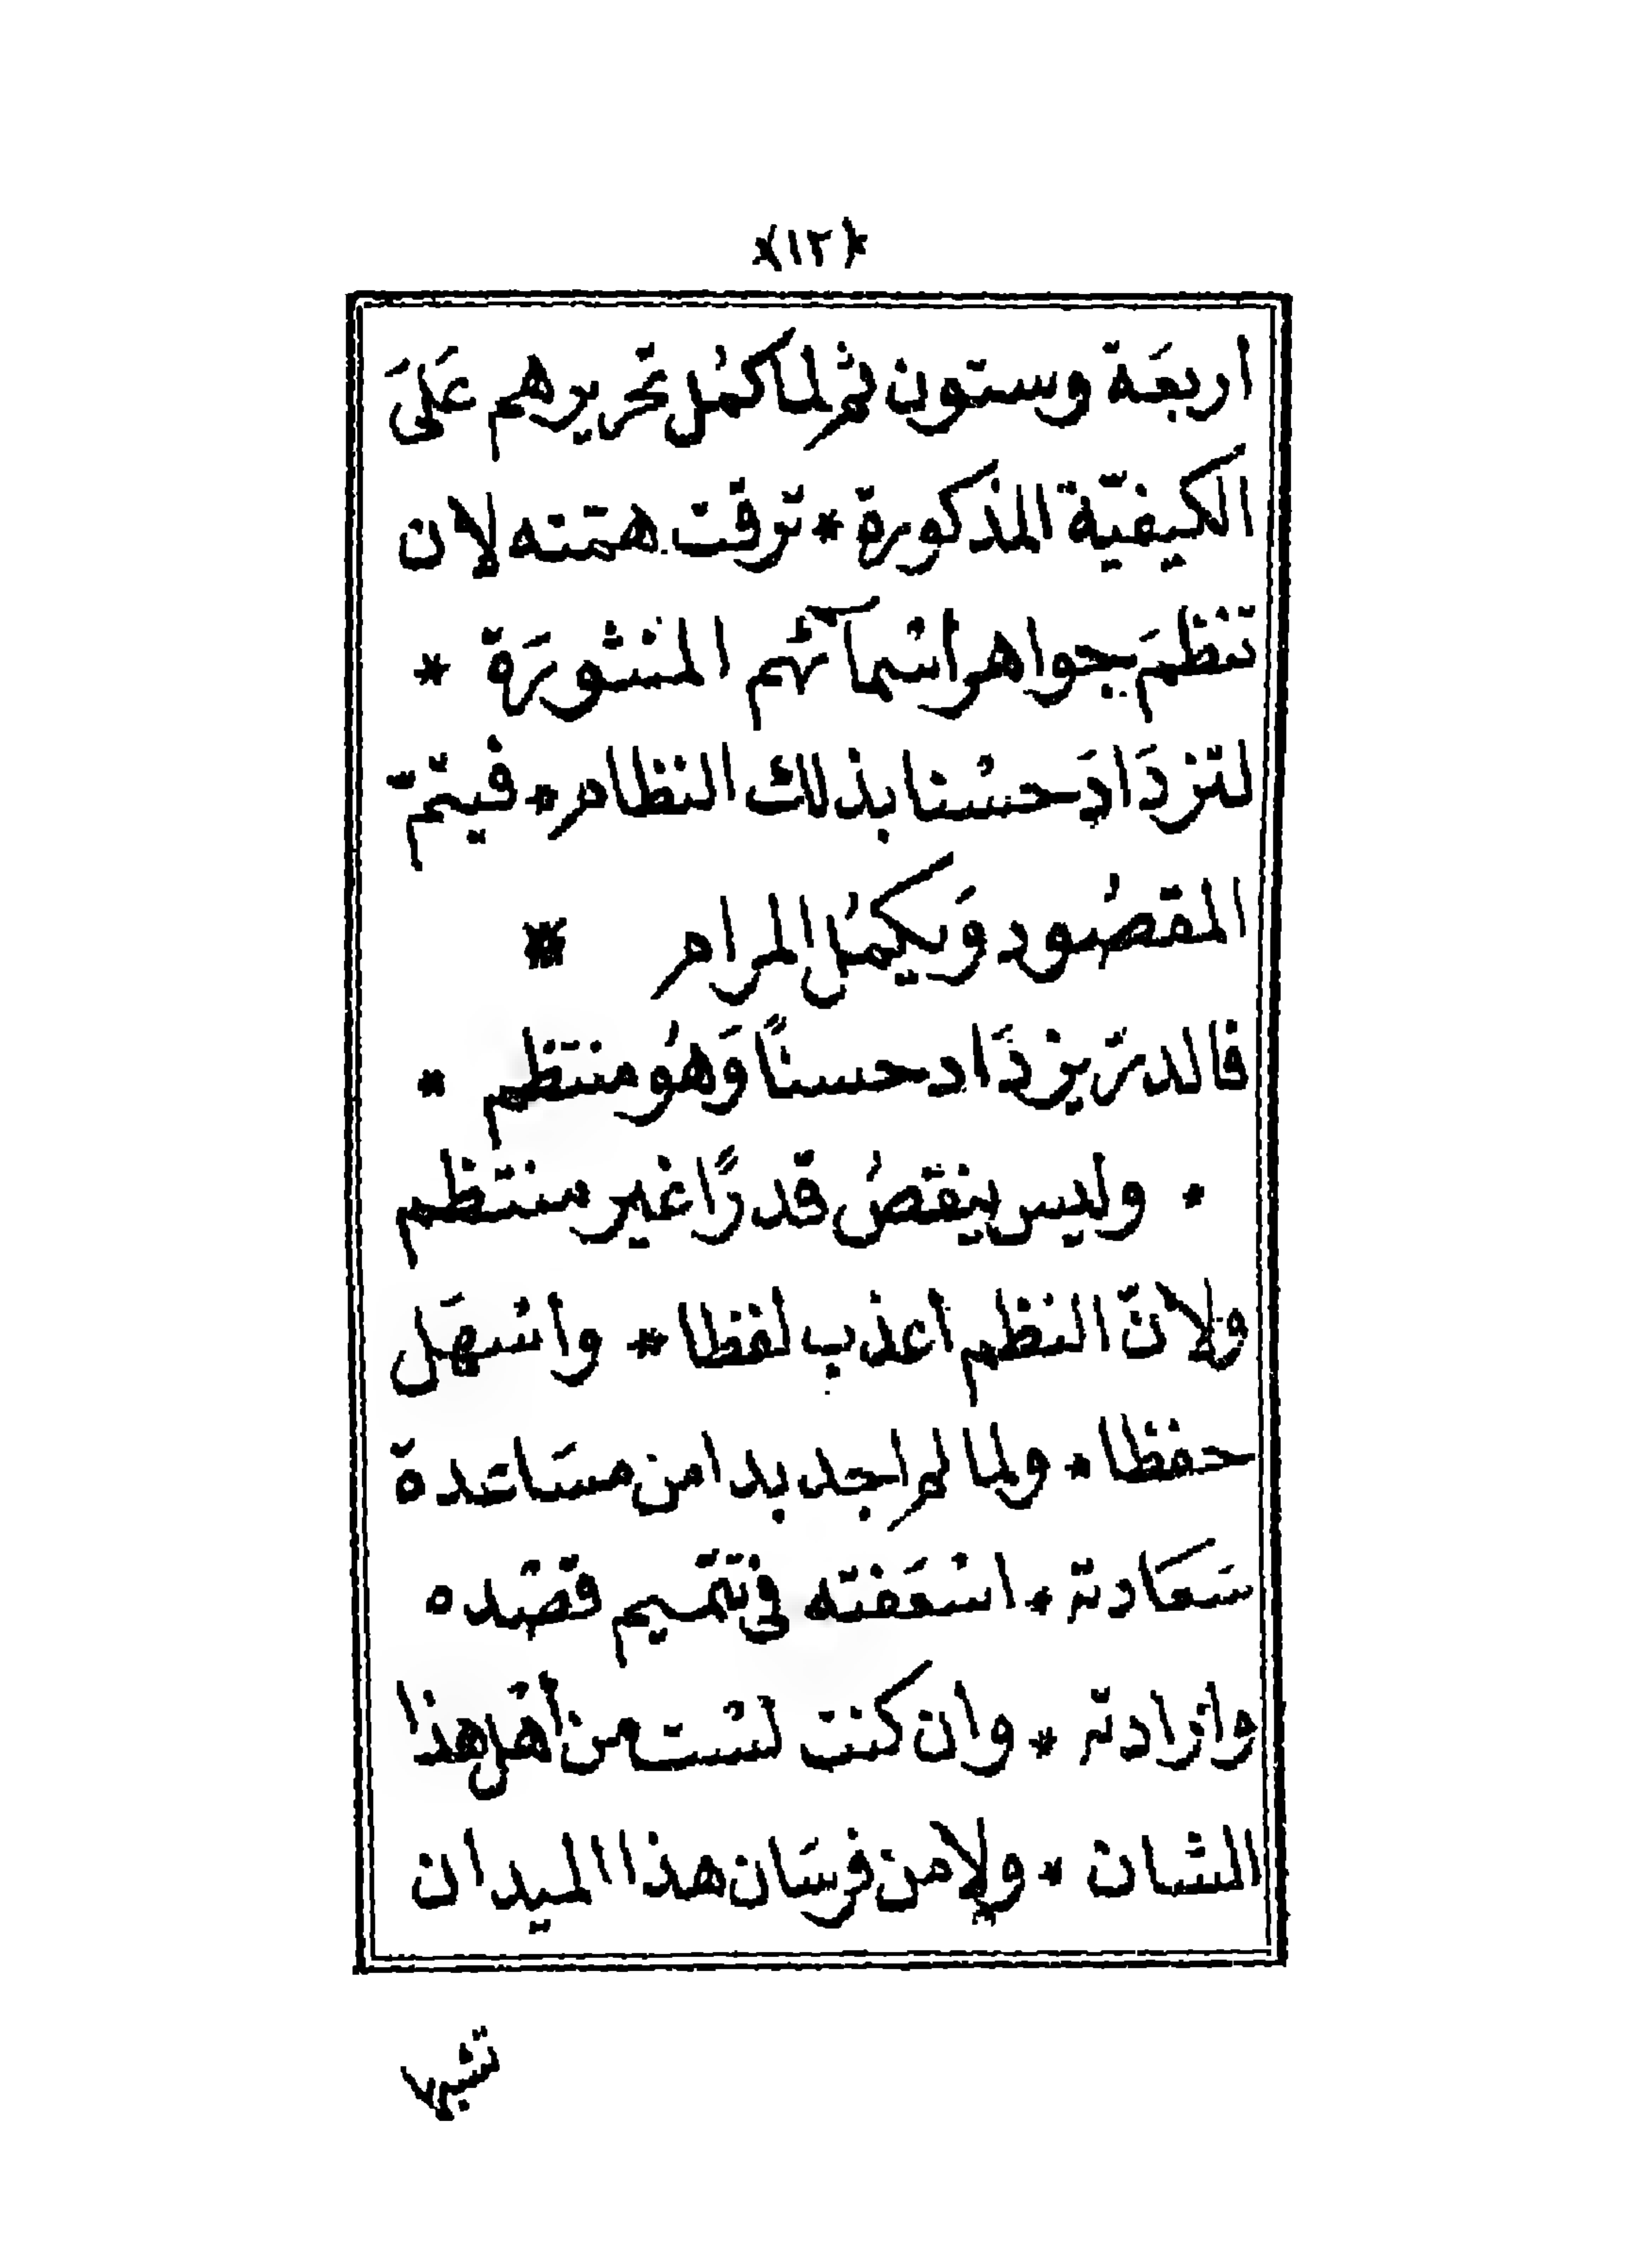 ﴿١٢﴾
اربعَة وستون ثم لما كمُل تحريرهم عَلىَ
الكيفيّة المذكورة * ترقت همته لان
تنظمَ جواهر اسْمآئهم المنثورَة *
لتزدَادَ حسْنا بذلك النظام * فيتمّ
المقصُود وَيكمُل المرام *
فالدرّ يزدَاد حسنًا وَهُو منتظم *
* وليس ينقصُ قدرًا غير منتظم
ولانّ النظم أعذب لفظا * وأسْهَل
حفظا * ولما لم اجد بدا من مسَاعدة
سَعَادته * اسْعَفته في تتميم قصْده
وارادته * وان كنت لسْت من أهْل هذا
الشان * ولا من فرسَان هذا الميدان
تشبها